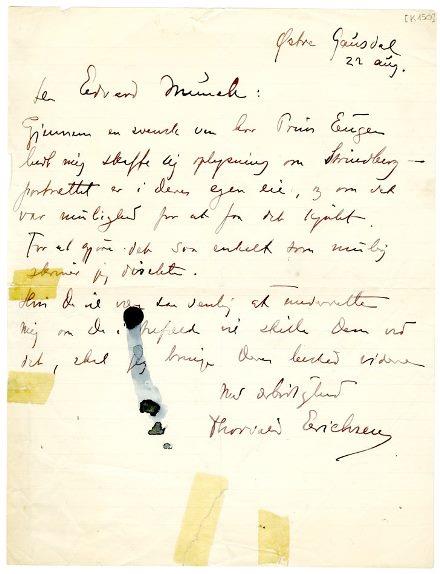 [K 150]
Østre Gausdal
22 aug.
Herr Edvard Munch:
Gjennem en svensk ven har Prins Eugen
bedt mig skaffe sig oplysning om Strindberg –
portrættet er i deres egen eie, og om det
var mulighed for at faa det kjøbt.
For at gjøre det saa enkelt som mulig
skriver jeg direkte.
Hvis De vil være saa venlig at underrette
mig om De i tilfelde vil skille Dem ved
det, skal jeg bringe Deres besked videre
Med
Thorvald Erichsen